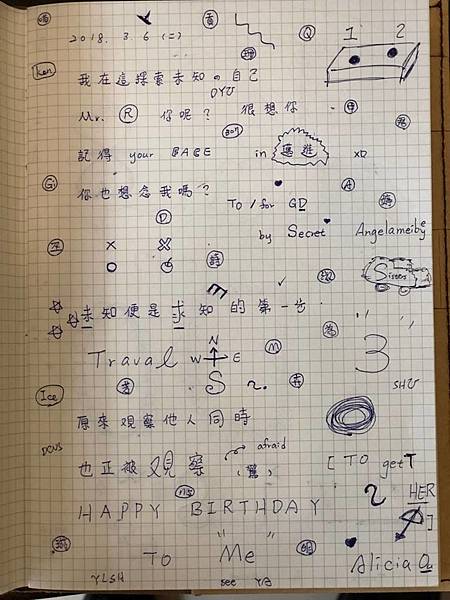 2018. 3. 6 (二)
Q 1 2
Ken 我在這探索未知の自己
Mr. R 你呢? 很想你
記得 your in 邁進 XD
G 你也想念我嗎? A
TO / for GD
D by Secret Angelameiby
Sisters
未知便是求知的第一步
M 3
Traval N W E S
Ice SHU
原來觀察他人同時
afraid
也正被觀察 [TO getT
HAPPY BIRTHDAY HER ]
TO "Me"
YLSH see YB Alicia